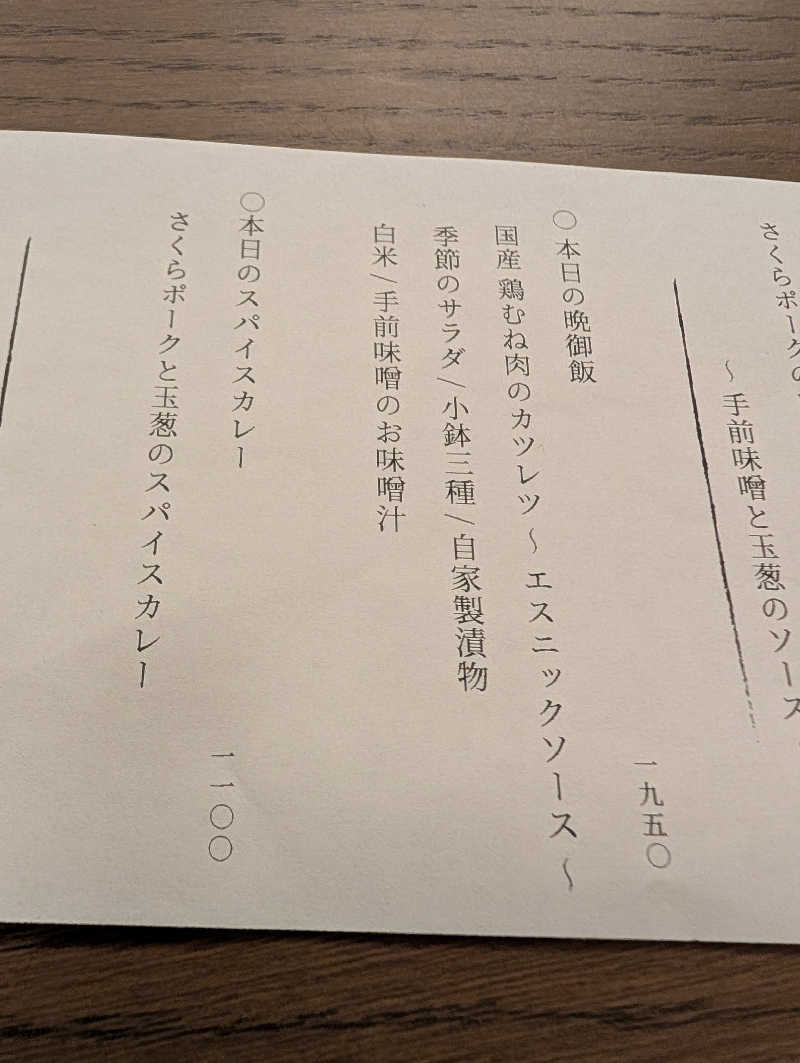 さくらポークの
〜手前味噌と玉葱のソース
〇本日の晩御飯
一九五〇
国産 鶏むね肉のカツレツ 〜 エスニックソース 〜
季節のサラダ/小鉢三種/自家製漬物
白米/手前味噌のお味噌汁
〇本日のスパイスカレー
一一〇〇
さくらポークと玉葱のスパイスカレー